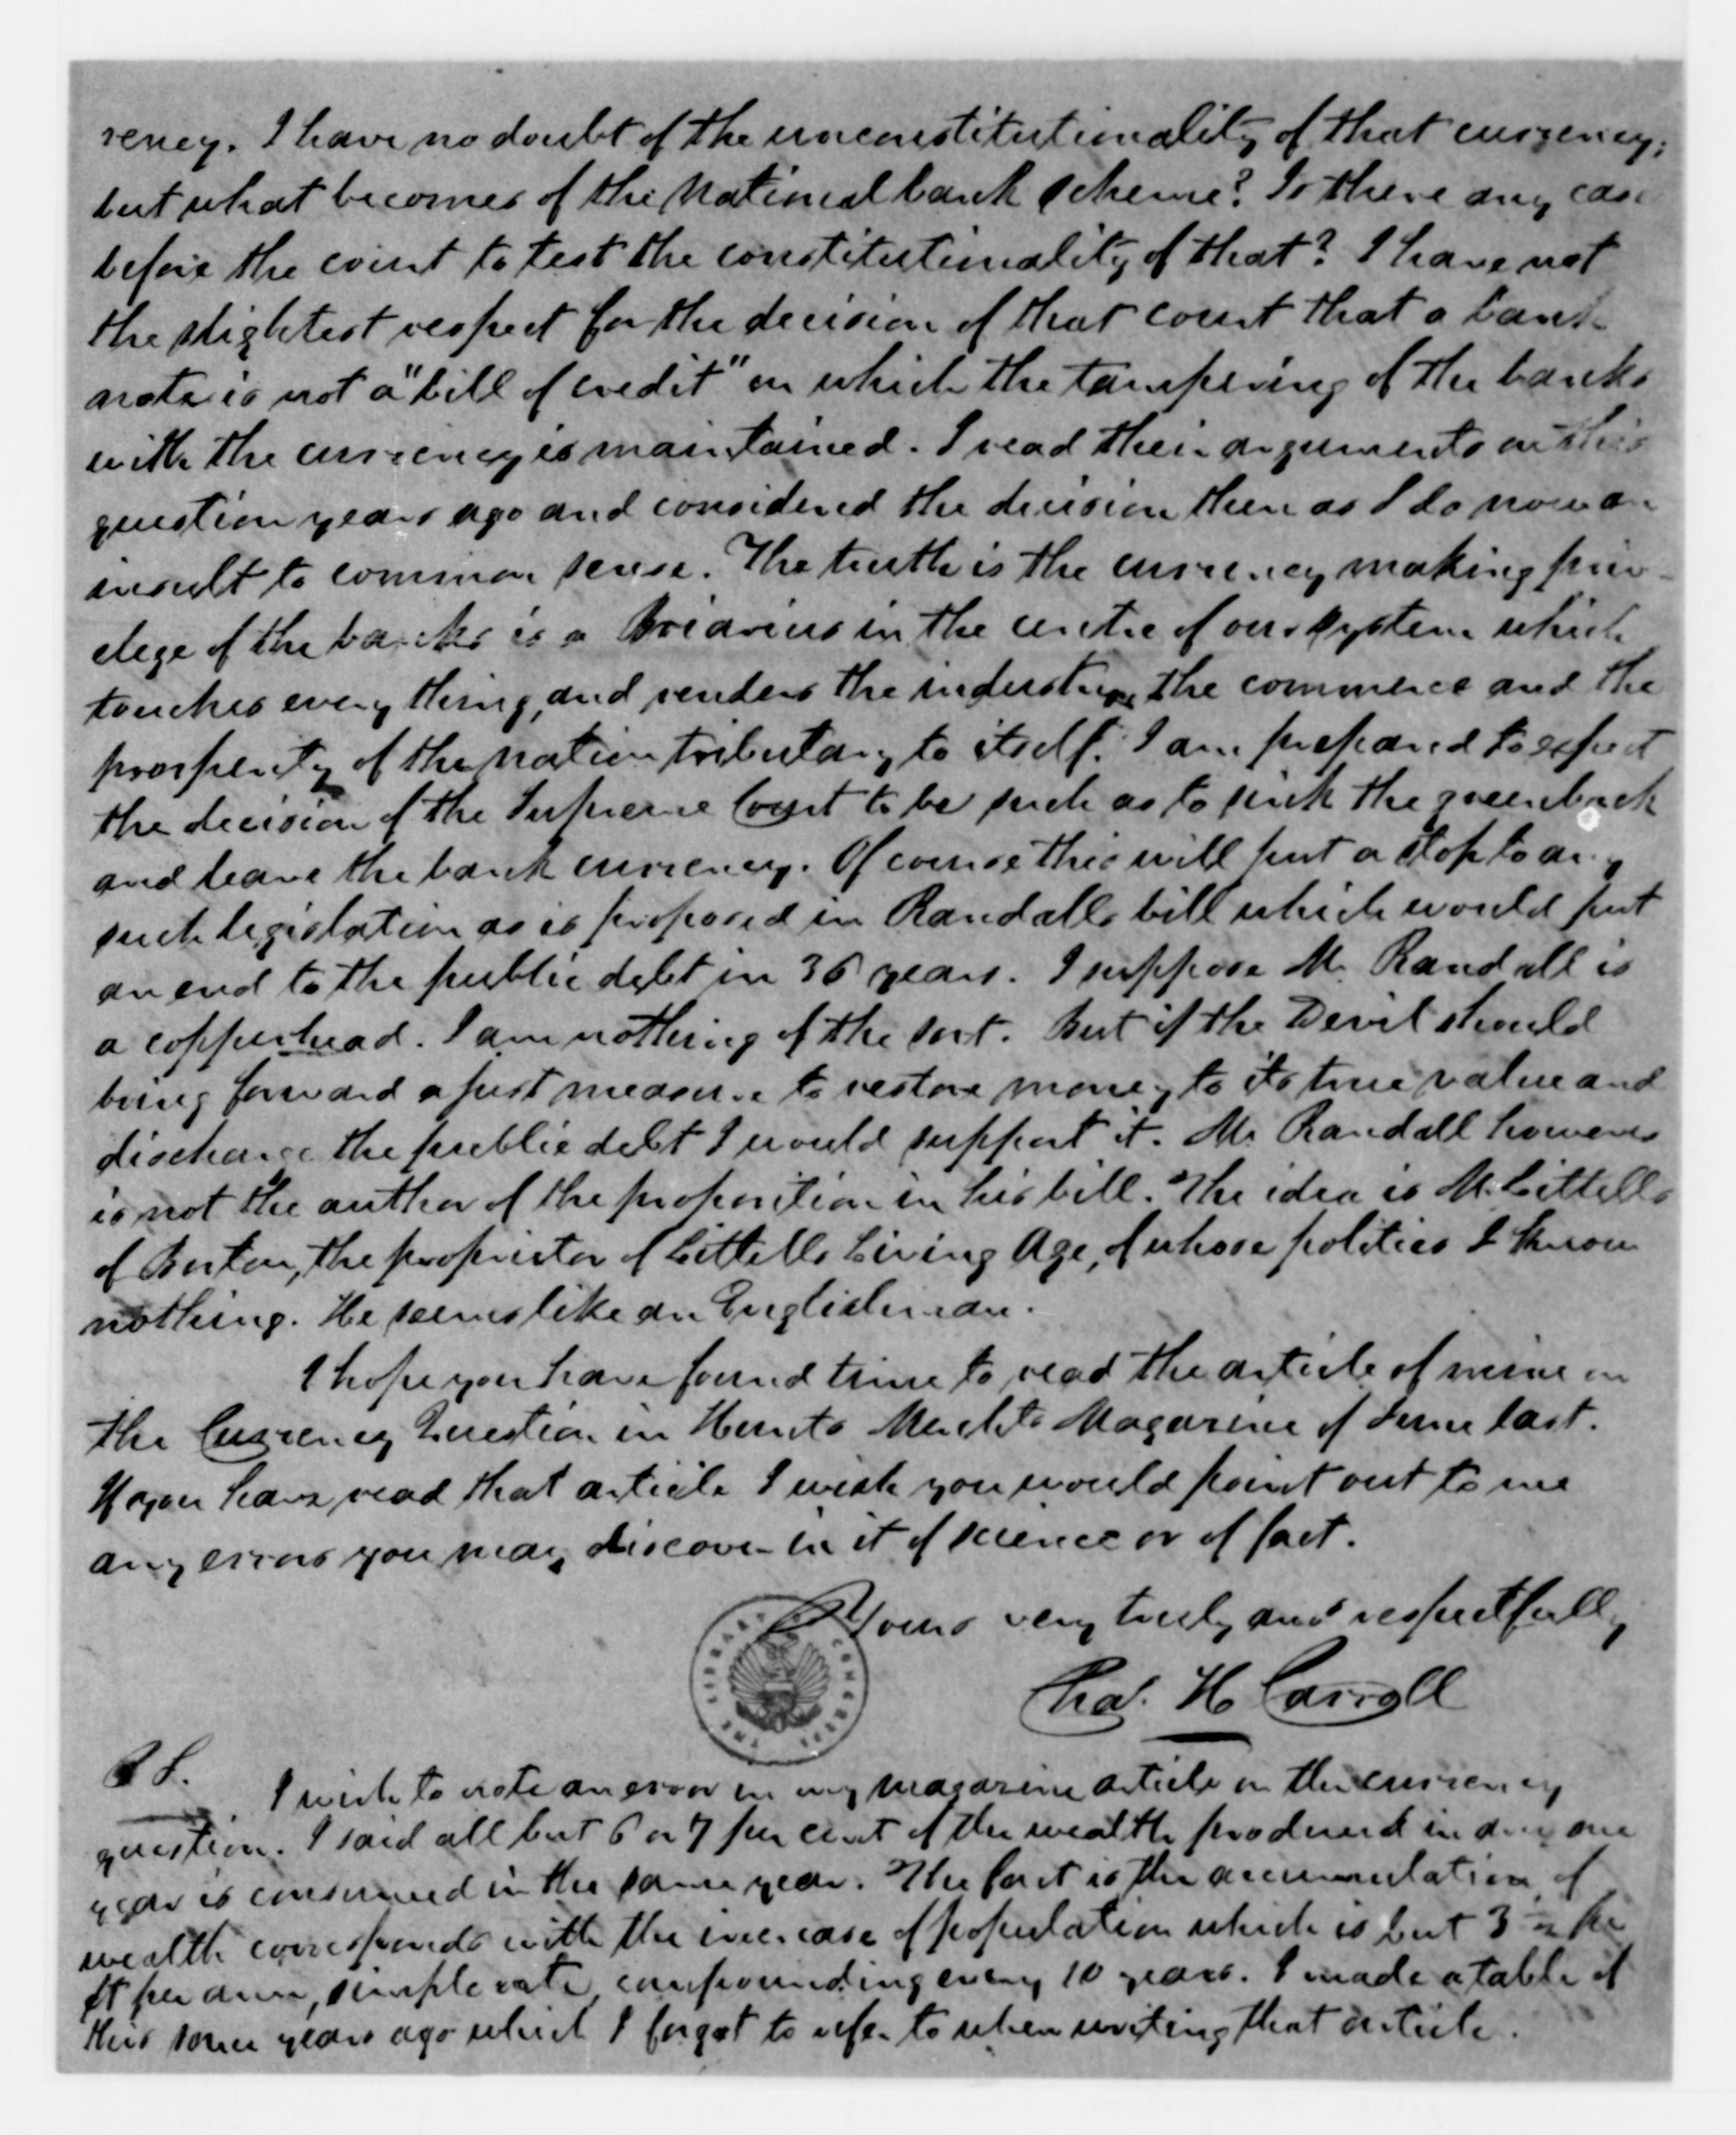 rency. I have no doubt of the unconstitutionality of that currency;
but what becomes of the National bank scheme? Is there any case
before the court to test the constitutionality of that? I have not
the slightest respect for the decision of that court that a bank
note is not a "bill of credit" on which the tampering of the banks
with the currency is maintained. I read their arguments on this
question years ago and considered the decision then as I do now an
insult to common sense. The truth is the currency making priv-
elege of the banks is a Briareus in the centre of our system which
touches every thing, and renders the industry, the commerce and the
prosperity of the nation tributary to itself. I am prepared to expect
the decision of the Supreme Court to be such as to sink the greenback
and leave the bank currency. Of course this will put a stop to any
such legislation as is proposed in Randalls bill which would put
an end to the public debt in 36 years. I suppose Mr. Randall is
a copperhead. I am nothing of the sort. But if the Devil should
bring forward a just measure to restore money to its true value and
discharge the public debt I would support it. Mr Randall however
is not the author of the proposition in his bill. The idea is Mr. Littells
of Boston, the proprietor of Littells Living Age, of whose politics I know
nothing. He seems like an Englishman.
I hope you have found time to read the article of mine on
the Currency Question in Hunts Merchts Magazine of June last.
If you have read that article I wish you would point out to me
any errors you may discover in it of science or of fact.
Yours very truly and respectfully
Chas. H Carroll
THE LIBRARY CONGRESS
P S.
I wish to note an error in my magazine article on the currency
question. I said all but 6 or 7 per cent of the wealth produced in any one
year is consumed in the same year. The fact is the accumulation of
wealth corresponds with the increase of population which is but 3 per
ct per ann, simple rate, compounding every 10 years. I made a table of
this some years ago which I forgot to refer to when writing that article.